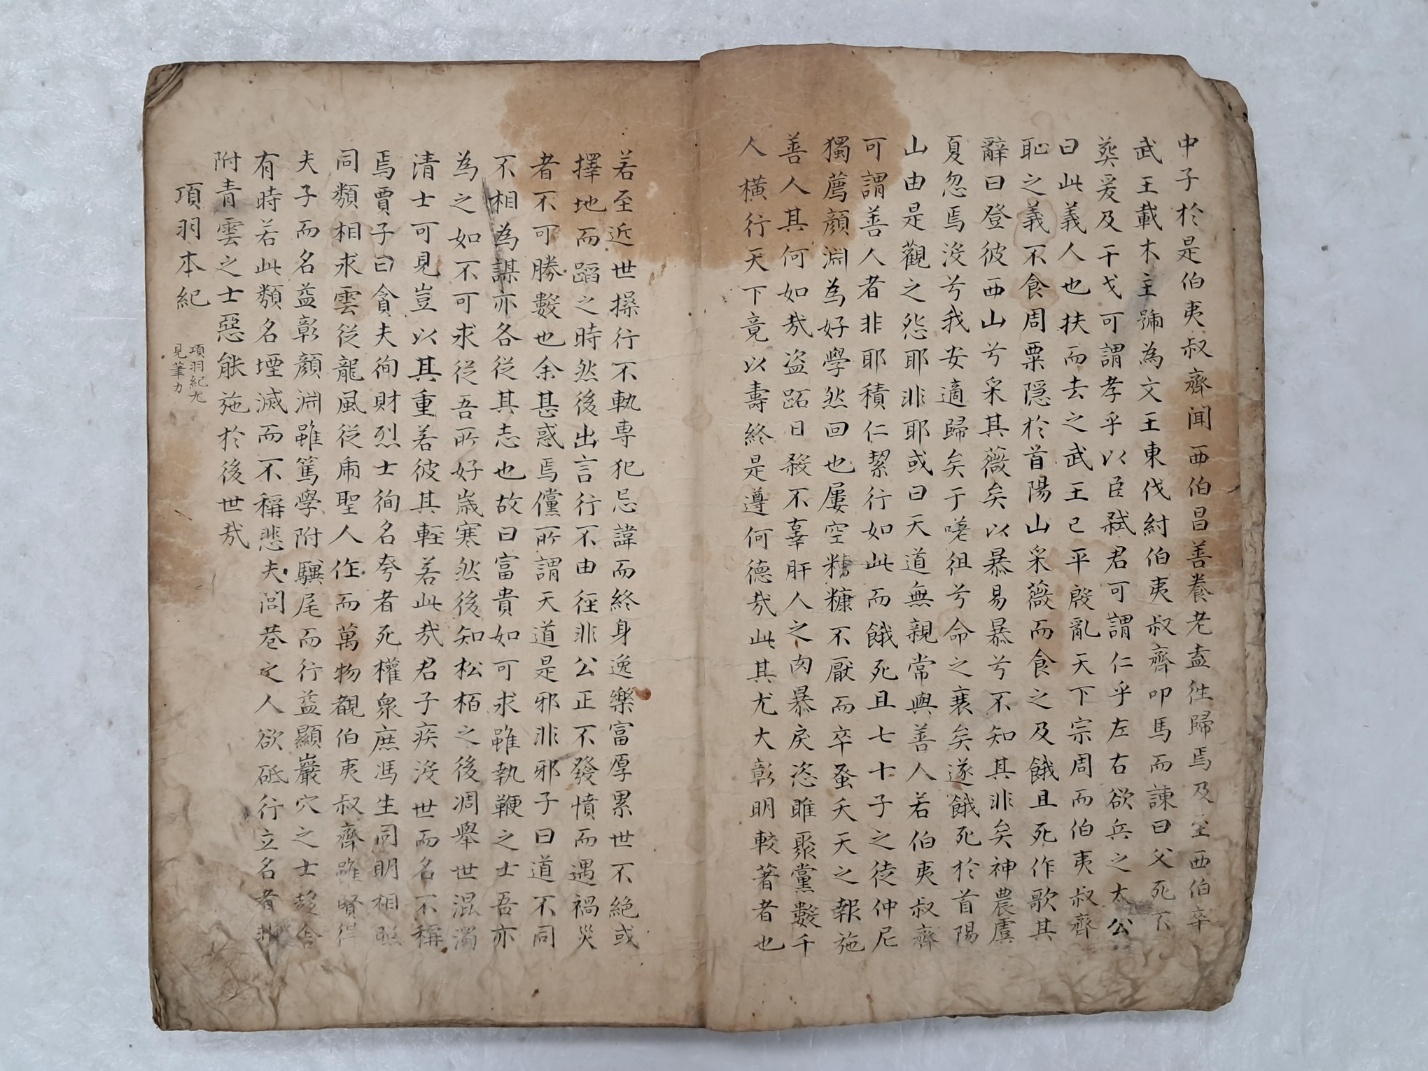 中子於是伯夷叔齊闻西伯昌善養老盍徃歸焉及至西伯卒
武王載木主號為文王東伐紂伯夷叔齊叩馬而諫曰父死不
葬爰及干戈可謂孝乎以臣弑君可謂仁乎左右欲兵之太公
曰此義人也扶而去之武王已平殷亂天下宗周而伯夷叔齊
恥之義不食周粟隠於首陽山采薇而食之及餓且死作歌其
辭曰登彼西山兮采其薇矣以暴易暴兮不知其非矣神農虞
夏忽焉没兮我安適歸矣于嗟徂兮命之衰矣遂餓死於首陽
山由是觀之怨耶非耶或曰天道無親常與善人若伯夷叔齊
可謂善人者非耶積仁絜行如此而餓死且七十子之徒仲尼
獨薦顔淵為好學然回也屢空糟糠不厭而卒蚤夭天之報施
善人其何如㢤盗跖日殺不辜肝人之肉暴戾恣睢聚黨數千
人横行天下竟以壽終是遵何德㢤此其尤大彰明較著者也
若至近世操行不軌専犯忌諱而終身逸樂富厚累世不絶或
擇地而蹈之時然後出言行不由径非公正不發憤而遇禍災
者不可勝數也余甚惑焉儻所謂天道是邪非邪子曰道不同
不相為謀亦各從其志也故曰富貴如可求雖執鞭之士吾亦
為之如不可求從吾所好嵗寒然後知松栢之後凋舉世混濁
清士可見豈以其重若彼其輊若此㢤君子疾没世而名不稱
焉賈子曰貪夫徇財烈士徇名夸者死權衆庶馮生同明相照
同類相求雲從龍風從虎聖人作而萬物覩伯夷叔齊雖賢得
夫子而名益彰顔淵雖篤學附驥尾而行益顯巖穴之士趍舎
有時若此類名堙滅而不稱悲夫閭巷之人欲砥行立名者非
附青雲之士惡能施於後世㢤
項羽本紀
項羽紀尤
見筆力